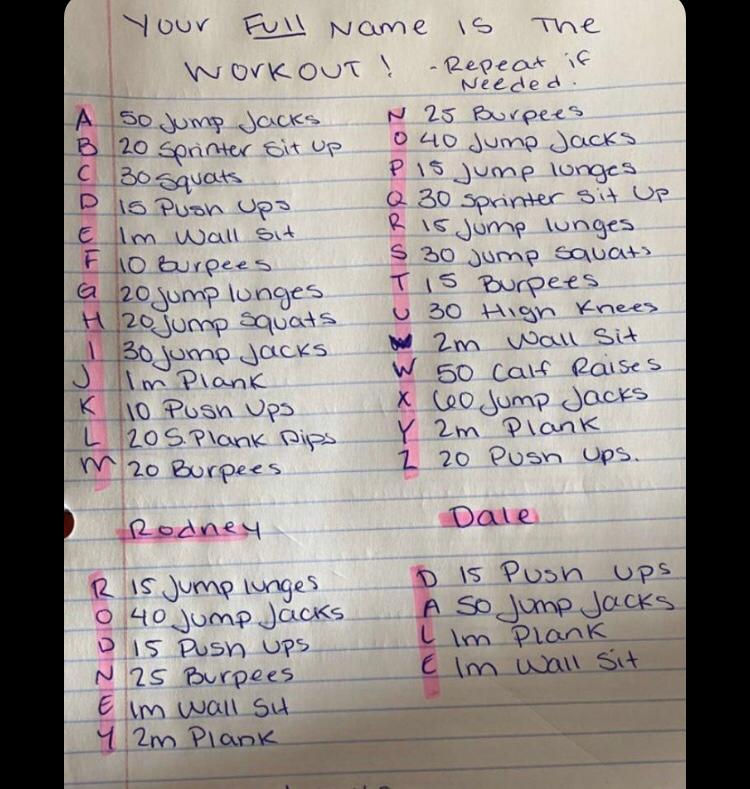 Your Full Name is The
Workout! - Repeat if
Needed.
A 50 Jump Jacks
B 20 Sprinter Sit Up
C 30 Squats
D 15 Push Ups
E 1m Wall Sit
F 10 Burpees
G 20 jump lunges
H 20 jump squats
I 30 jump Jacks
J 1m Plank
K 10 Push Ups
L 20 S. Plank Dips
M 20 Burpees
N 25 Burpees
O 40 Jump Jacks
P 15 Jump lunges
Q 30 Sprinter Sit Up
R 15 Jump lunges
S 30 Jump Squats
T 15 Burpees
U 30 High Knees
2m Wall Sit
W 50 Calf Raises
X 60 Jump Jacks
Y 2m Plank
Z 20 Push Ups.
Rodney
R 15 Jump lunges
O 40 Jump Jacks
D 15 Push Ups
N 25 Burpees
E 1m Wall Sit
Y 2m Plank
Dale
D 15 Push Ups
A 50 Jump Jacks
L 1m Plank
E 1m Wall Sit